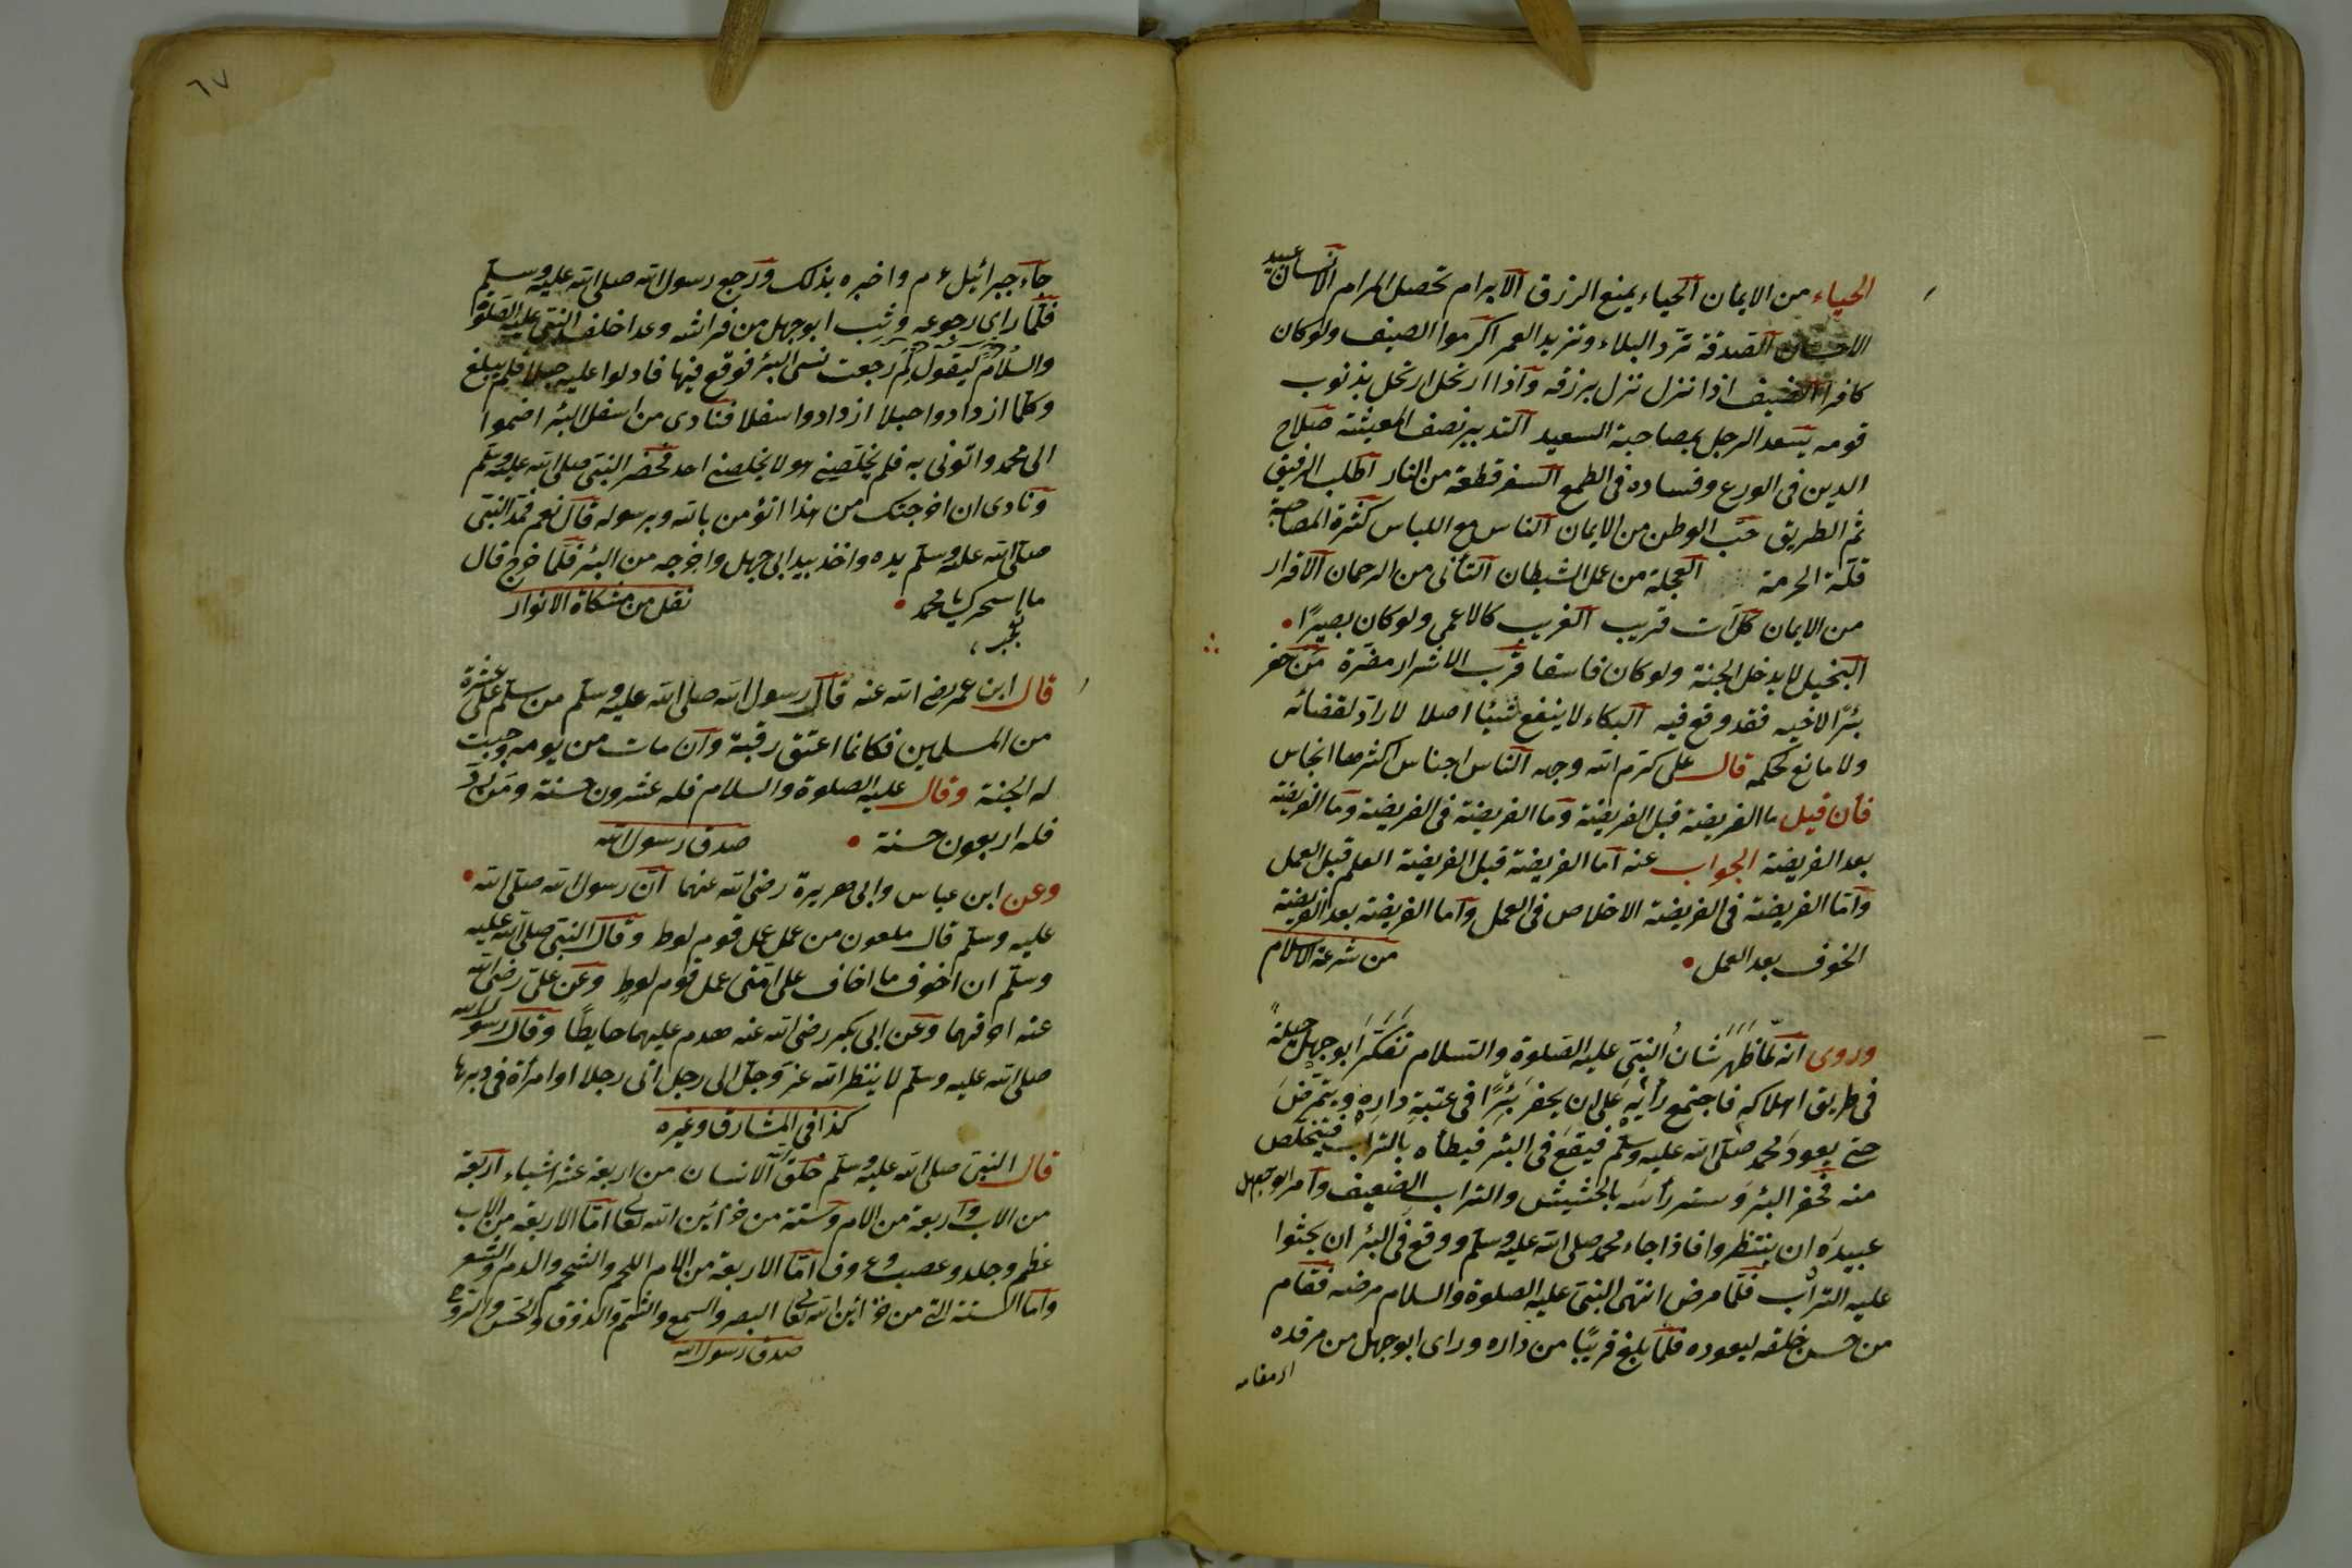 الحياء من الايمان الحياء يمنع الرزق الابرام تحصل المرام الانسان عبيد
الاحسان الصدقة ترد البلاء وتزيد العمر اكرموا الضيف ولوكان
كافرا الضيف اذا نزل نزل برزقه واذا ارتحل ارتحل بذنوب
قومه يسعد الرجل بمصاحبة السعيد التدبير نصف المعيشة صلاح
الدين فى الورع وفساده فى الطمع السفر قطعة من النار اطلب الرفيق
ثم الطريق حب الوطن من الايمان الناس مع اللباس كثرة المصاحبة
قلة الحرمة العجلة من عمل الشيطان التأنى من الرحمان الاقرار
من الايمان كل آت قريب الغريب كالاعمى ولوكان بصيرًا
البخيل لا يدخل الجنة ولوكان فاسقا قرب الاشرار مضرة من حفر
بئرًا لاخيه فقد وقع فيه البكاء لا ينفع شيئا اصلا لا راد لقضائه
ولا مانع لحكمه قال على كرم الله وجهه الناس اجناس اكثرها انجاس
فان قيل ما الفريضة قبل الفريضة وما الفريضة فى الفريضة وما الفريضة
بعد الفريضة الجواب عنه اما الفريضة قبل الفريضة العلم قبل العمل
واما الفريضة فى الفريضة الاخلاص فى العمل واما الفريضة بعد الفريضة
الخوف بعد العمل من شرعة الاسلام
وروى انه لما ظهر شان النبى عليه الصلوة والسلام تفكر ابوجهل حيلة
فى طريق اهلاكه فاجتمع رأيه على ان يحفر بئرًا فى عتبة داره ويتمرض
حتى يعود محمد صلى الله عليه وسلم فيقع فى البئر فيطأه بالتراب فيتخلص
منه فحفر البئر وستر رأسه بالحشيش والتراب الضعيف وامر ابوجهل
عبيده ان ينتظروا فاذا جاء محمد صلى الله عليه وسلم ووقع فى البئر ان يحثوا
عليه التراب فلما مرض انتهى النبى عليه الصلوة والسلام مرضه فقام
من حسن خلقه ليعوده فلما بلغ قريبًا من داره وراى ابوجهل من مرقده
٦٧
جاء جبرائيل ءم واخبره بذلك ورجع رسول الله صلى الله عليه وسلم
فلما راى رجوعه وثب ابوجهل من فراشه وعدا خلف النبى عليه الصلوة
والسلام ليقول لم رجعت نسى البئر فوقع فيها فادلوا عليه حبلا فلم يبلغ
وكلما ازدادوا حبلا ازدادوا سفلا فنادى من اسفل البئر اضموا
الى محمد واتونى به فلم يخلصنى هو لا يخلصنى احد فحضر النبى صلى الله عليه وسلم
ونادى ان اخرجتك من هذا اتؤمن بالله وبرسوله قال نعم فمد النبى
صلى الله عليه وسلم يده واخذ بيد ابى جهل واخرجه من البئر فلما خرج قال
ما اسحرك يا محمد نقل من مشكاة الانوار
قال ابن عمر رضى الله عنه قال رسول الله صلى الله عليه وسلم من سلم على عشرة
من المسلمين فكانما اعتق رقبة وان مات من يومه وجبت
له الجنة وقال عليه الصلوة والسلام فله عشرون حسنة ومن رد
فله اربعون حسنة صدق رسول الله
وعن ابن عباس وابى هريرة رضى الله عنهما ان رسول الله صلى الله
عليه وسلم قال ملعون من عمل عمل قوم لوط وقال النبى صلى الله عليه
وسلم ان اخوف ما اخاف على امتى عمل قوم لوط وعن على رضى الله
عنه احرقهما وعن ابى بكر رضى الله عنه هدم عليهما حايطًا وقال رسول الله
صلى الله عليه وسلم لا ينظر الله عز وجل الى رجل اتى رجلا او امرأة فى دبرها
كذا فى المشارق وغيره
قال النبى صلى الله عليه وسلم خلق الله الانسان من اربعة عشر اشياء اربعة
من الاب واربعة من الام وستة من خزائن الله تعالى اما الاربعة من الاب
عظم وجلد وعصب وعروق اما الاربعة من الام اللحم والشحم والدم والشعر
واما الستة التى من خزائن الله تعالى البصر والسمع والشم والذوق والحس والروح
صدق رسول الله